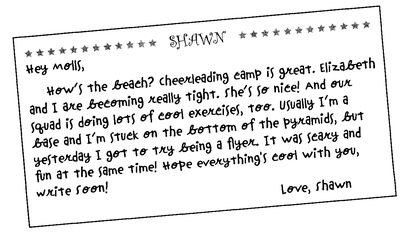 SHAWN
Hey Molls,
How's the beach? Cheerleading camp is great. Elizabeth
and I are becoming really tight. She's so nice! And our
squad is doing lots of cool exercises, too. Usually I'm a
base and I'm stuck on the bottom of the pyramids, but
yesterday I got to try being a flyer. It was scary and
fun at the same time! Hope everything's cool with you,
write soon!
Love, Shawn